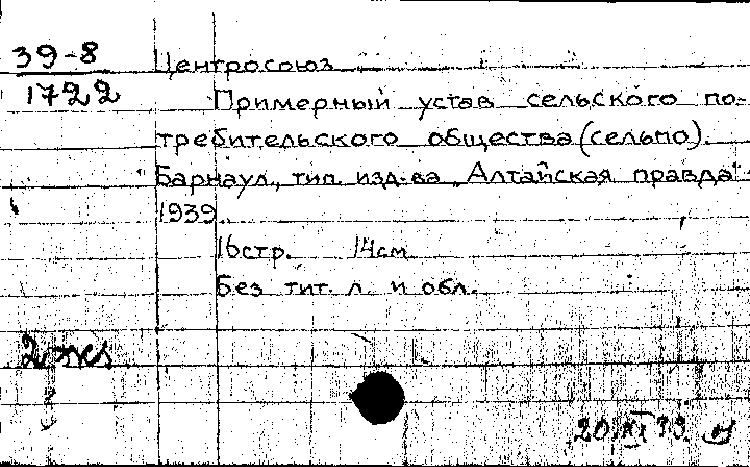 39-8
1722
Центросоюз
Примерный устав сельского по-
требительского общества (сельпо).
Барнаул, тип. изд-ва „Алтайская правда"
1939.
16 стр. 14 см
Без тит. л. и обл.
2 экз